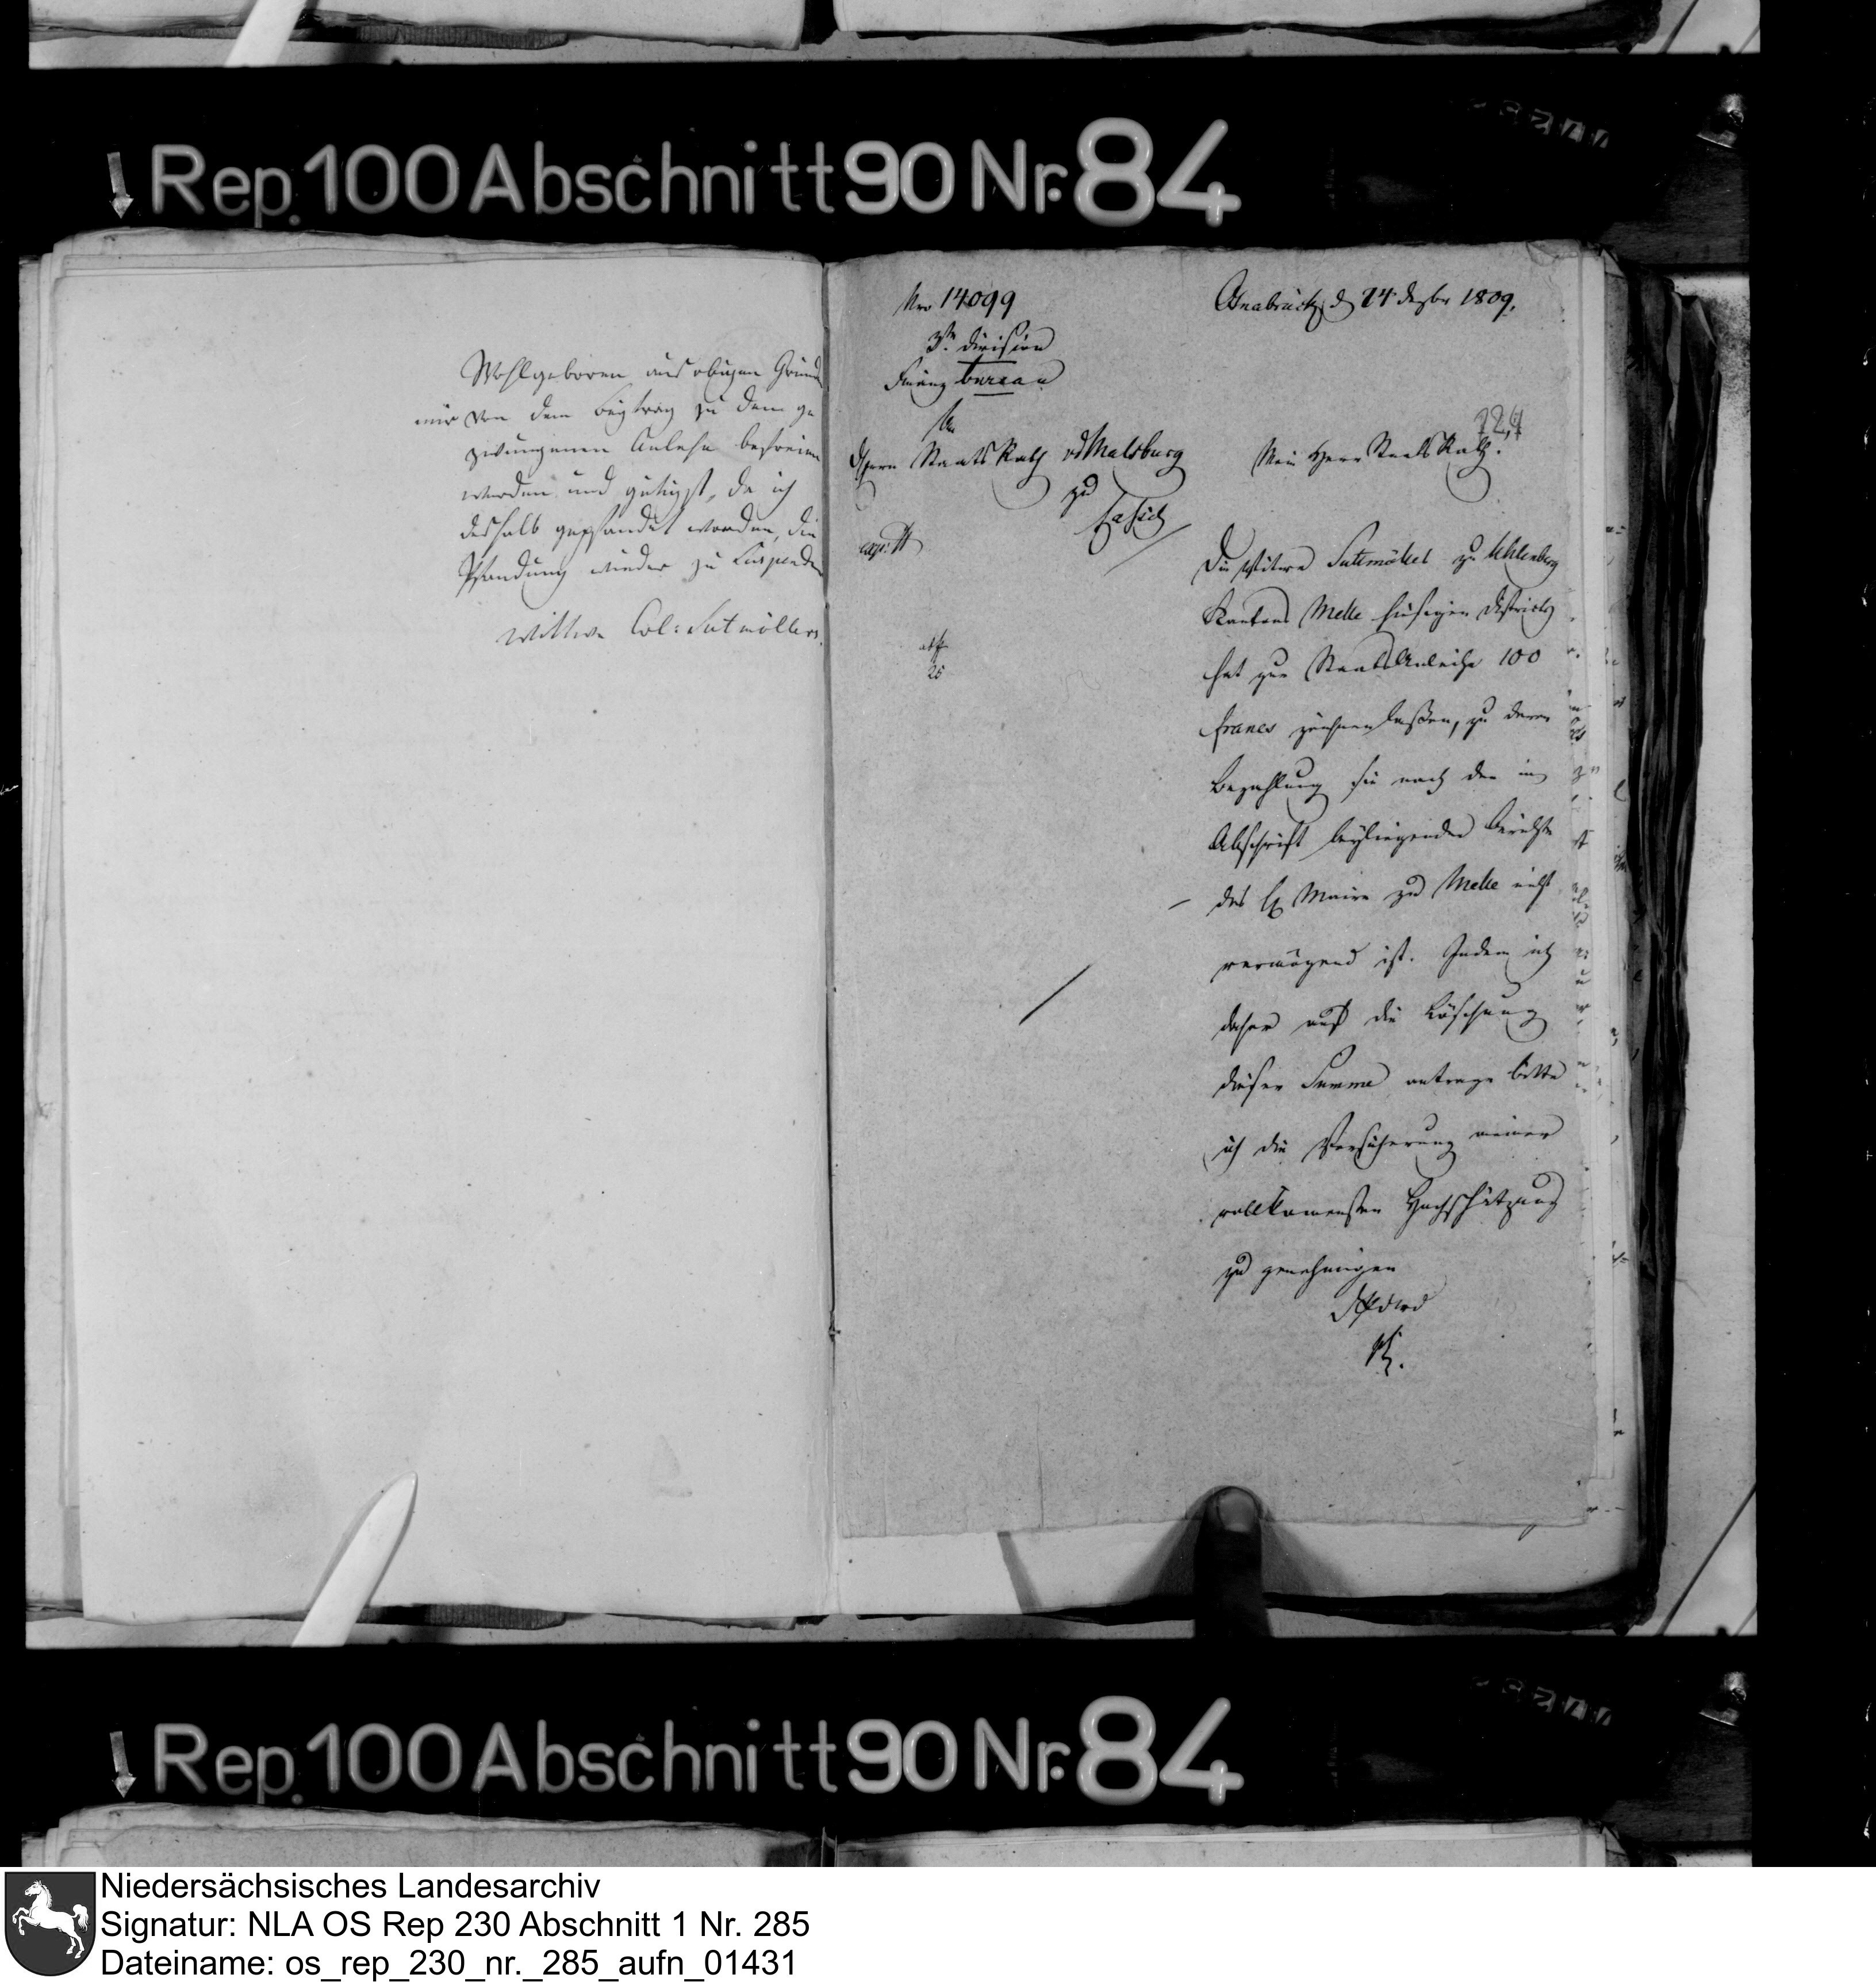 Rep. 100 Abschnitt 90 Nr. 84
Wohlgeboren aus obigen Gründ
mir von dem Beytrag zu dem ge
zwungenen Anlehn befreien
werden und gütigst, da ich
deshalb gepfändet worden, die
Pfandung wieder zu
Wittwe Col: Sutmöllers.
Nro 14099
3te division
Finanz bureau
An
Herrn Staats Rath vd Malsburg
zu
Cassel
exp:
Osnabrück d 24 dezbr 1809.
124
Mein Herr Staats Rath.
Die Witwe Sutmöller zu Uhlenberg
Kantons Melle hiesigen Districts
hat zur Staats Anleihe 100
francs zeichnen laßen, zu deren
Bezahlung sie nach dem in
Abschrift beyliegenden Berichte
des H Maire zu Melle nicht
vermögend ist. Indem ich
daher auf die Löschung
dieser Summe antrage bitte
ich die Versicherung meiner
vollkomensten Hochschätzung
zu genehmigen
Rep. 100 Abschnitt 90 Nr. 84
Niedersächsisches Landesarchiv
Signatur: NLA OS Rep 230 Abschnitt 1 Nr. 285
Dateiname: os_rep_230_nr._285_aufn_01431